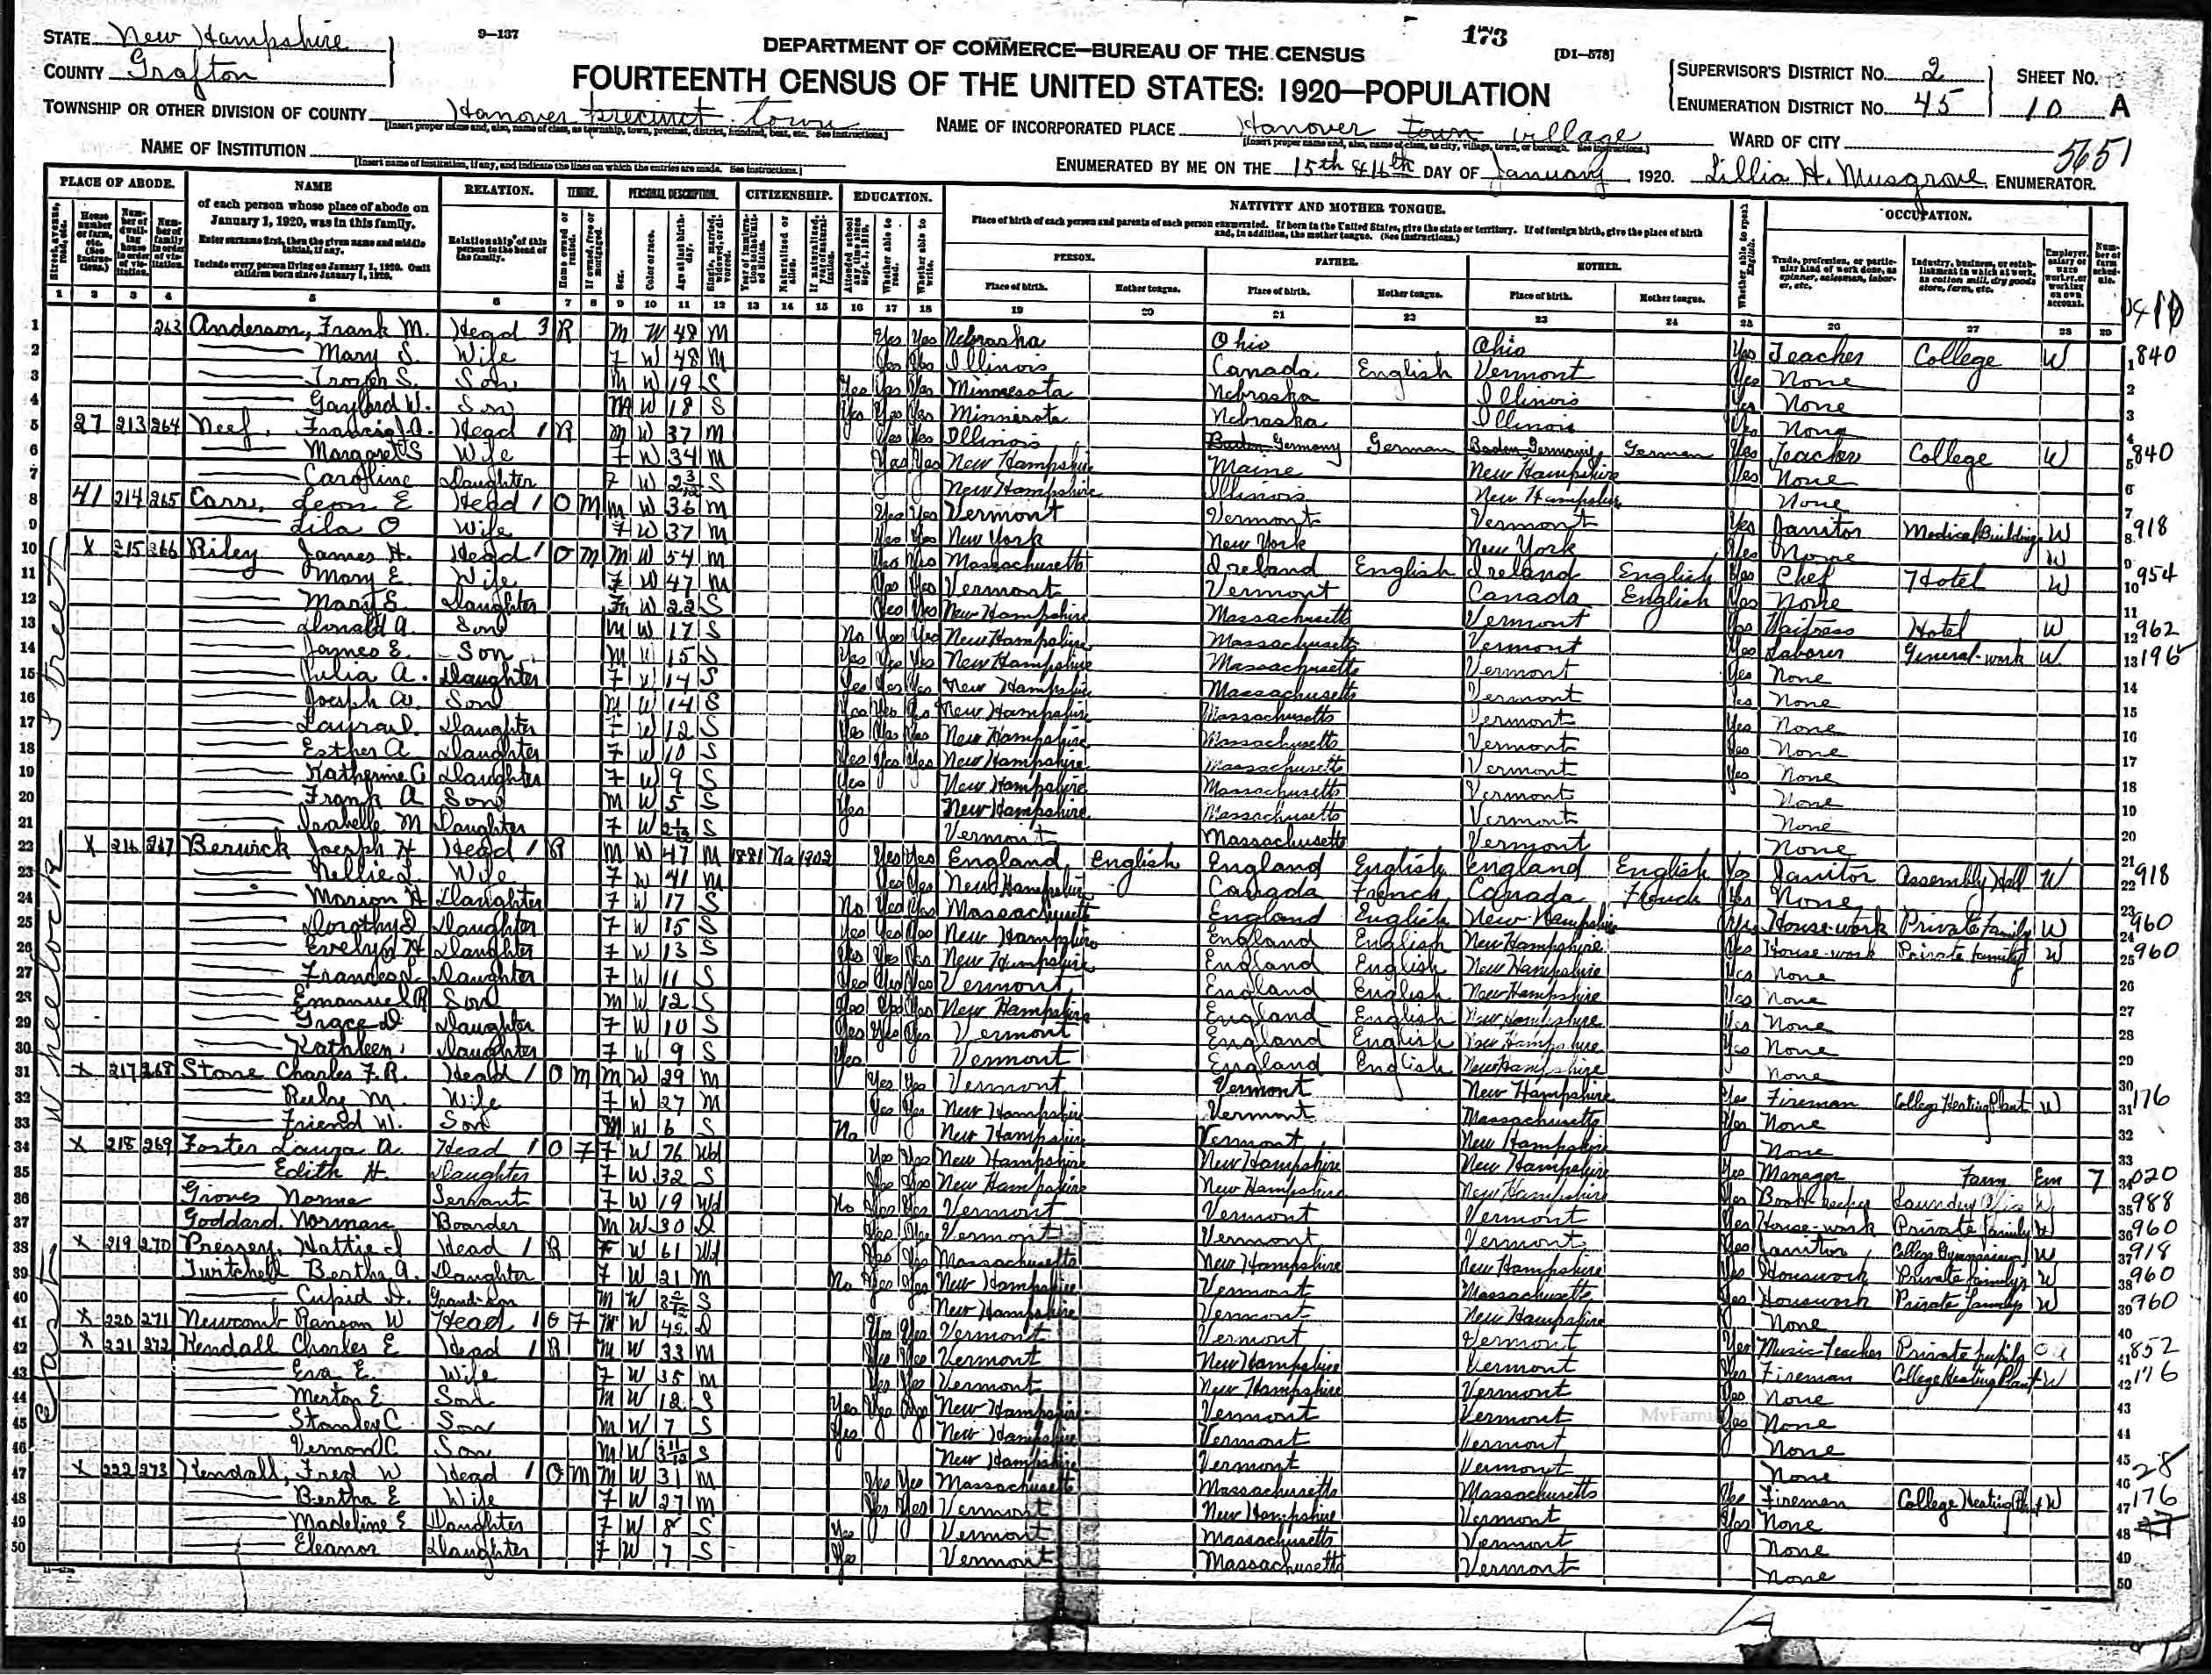 STATE New Hampshire
COUNTY Grafton
9-137
173
[D1-578]
DEPARTMENT OF COMMERCE—BUREAU OF THE CENSUS
FOURTEENTH CENSUS OF THE UNITED STATES: 1920—POPULATION
SUPERVISOR'S DISTRICT NO. 2
ENUMERATION DISTRICT NO. 45
SHEET NO. 10 A
TOWNSHIP OR OTHER DIVISION OF COUNTY Hanover precinct town
[Insert proper name and, also, name of class, as township, town, precinct, district, hundred, beat, etc. See instructions.]
NAME OF INCORPORATED PLACE Hanover town village
[Insert proper name and, also, name of class, as city, village, town, or borough. See instructions.]
WARD OF CITY
5651
NAME OF INSTITUTION
[Insert name of institution, if any, and indicate the lines on which the entries are made. See instructions.]
ENUMERATED BY ME ON THE 15th & 16th DAY OF January, 1920. Lillia H. Musgrove, ENUMERATOR.
PLACE OF ABODE. NAME RELATION. TENURE. PERSONAL DESCRIPTION. CITIZENSHIP. EDUCATION. NATIVITY AND MOTHER TONGUE. OCCUPATION.
of each person whose place of abode on January 1, 1920, was in this family.
Enter surname first, then the given name and middle initial, if any.
Include every person living on January 1, 1920. Omit children born since January 1, 1920.
Relationship of this person to the head of the family.
Place of birth of each person and parents of each person enumerated. If born in the United States, give the state or territory. If of foreign birth, give the place of birth and, in addition, the mother tongue. (See instructions.)
PERSON. FATHER. MOTHER.
Place of birth. Mother tongue. Place of birth. Mother tongue. Place of birth. Mother tongue.
1 263 Anderson, Frank M. Head 3 R M W 48 M Yes Yes Nebraska Ohio Ohio Yes Teacher College W 840
2 Mary S. Wife F W 48 M Yes Yes Illinois Canada English Vermont Yes None
3 Troyer S. Son M W 19 S Yes Yes Yes Minnesota Nebraska Illinois Yes None
4 Gaylord W. Son M W 18 S Yes Yes Yes Minnesota Nebraska Illinois Yes None
5 27 213 264 Neef, Francis A. Head 1 R M W 37 M Yes Yes Illinois Baden Germany German Baden Germany German Yes Teacher College W 840
6 Margaret S Wife F W 34 M Yes Yes New Hampshire Maine New Hampshire Yes None
7 Caroline Daughter F W 2 3/12 S New Hampshire Illinois New Hampshire None
8 41 214 265 Carr, Leon E Head 1 O M M W 36 M Yes Yes Vermont Vermont Vermont Yes Janitor Medical Building W 918
9 Lila O Wife F W 37 M Yes Yes New York New York New York Yes None W
10 X 215 266 Riley James H. Head 1 O M M W 54 M Yes Yes Massachusetts Ireland English Ireland English Yes Chef Hotel W 954
11 Mary E. Wife F W 47 M Yes Yes Vermont Vermont Canada English Yes None
12 Mary E. Daughter F W 22 S Yes Yes New Hampshire Massachusetts Vermont Yes Waitress Hotel W 962
13 Donald A. Son M W 17 S No Yes Yes New Hampshire Massachusetts Vermont Yes Laborer General work W 196
14 James E. Son M W 15 S Yes Yes Yes New Hampshire Massachusetts Vermont Yes None
15 Julia A. Daughter F W 14 S Yes Yes Yes New Hampshire Massachusetts Vermont Yes None
16 Joseph W. Son M W 14 S Yes Yes Yes New Hampshire Massachusetts Vermont Yes None
17 Laura Daughter F W 12 S Yes Yes Yes New Hampshire Massachusetts Vermont Yes None
18 Esther A Daughter F W 10 S Yes Yes Yes New Hampshire Massachusetts Vermont Yes None
19 Katherine C Daughter F W 9 S Yes New Hampshire Massachusetts Vermont None
20 Frank A Son M W 5 S Yes New Hampshire Massachusetts Vermont None
21 Isabelle M Daughter F W S Vermont Massachusetts Vermont None
22 X 216 267 Berwick Joseph H Head 1 R M W 47 M 1881 Na 1902 Yes Yes England English England English England English Yes Janitor Assembly Hall W 918
23 Nellie L. Wife F W 41 M Yes Yes New Hampshire Canada French Canada French Yes None
24 Marion H Daughter F W 17 S No Yes Yes Massachusetts England English New Hampshire Yes House-work Private Family W 960
25 Dorothy D Daughter F W 15 S Yes Yes Yes New Hampshire England English New Hampshire Yes House-work Private family W 960
26 Evelyn H Daughter F W 13 S Yes Yes Yes New Hampshire England English New Hampshire Yes None
27 Frances L Daughter F W 11 S Yes Yes Yes Vermont England English New Hampshire Yes None
28 Emanuel R Son M W 12 S Yes Yes Yes New Hampshire England English New Hampshire Yes None
29 Grace D Daughter F W 10 S Yes Yes Yes Vermont England English New Hampshire Yes None
30 Kathleen Daughter F W 9 S Yes Vermont England English New Hampshire None
31 X 217 268 Stone Charles F. R. Head 1 O M M W 29 M Yes Yes Vermont Vermont New Hampshire Yes Fireman College Heating Plant W 176
32 Ruby M. Wife F W 27 M Yes Yes New Hampshire Vermont Massachusetts Yes None
33 Friend W. Son M W 6 S No New Hampshire Vermont New Hampshire None
34 X 218 269 Foster Laura A. Head 1 O F F W 76 Wd Yes Yes New Hampshire New Hampshire New Hampshire Yes Manager Farm Em 7 020
35 Edith H. Daughter F W 32 S Yes Yes New Hampshire New Hampshire New Hampshire Yes Book keeper Laundry W 988
36 Groves Norma Servant F W 19 Wd No Yes Yes Vermont Vermont Vermont Yes House-work Private Family W 960
37 Goddard Norman Boarder M W 30 D Yes Yes Vermont Vermont Vermont Yes Janitor College Gymnasium W 918
38 X 219 270 Pressey, Hattie J Head 1 R F W 61 Wd Yes Yes Massachusetts New Hampshire New Hampshire Yes Housework Private family W 960
39 Twitchell Bertha A. Daughter F W 21 M No Yes Yes New Hampshire Vermont Massachusetts Yes Housework Private family W 960
40 Cupid A. Grandson M W S New Hampshire Vermont New Hampshire None
41 X 220 271 Newcomb Ranson W Head 1 O F M W D Yes Yes Vermont Vermont Vermont Yes Music Teacher Private pupils OA 852
42 X 221 272 Kendall Charles E Head 1 R M W 33 M Yes Yes Vermont New Hampshire Vermont Yes Fireman College Heating Plant W 176
43 Eva E. Wife F W 35 M Yes Yes Vermont New Hampshire Vermont Yes None
44 Merton E Son M W 12 S Yes Yes Yes New Hampshire Vermont Vermont Yes None
45 Stanley C. Son M W 7 S Yes New Hampshire Vermont Vermont None
46 Vernon C. Son M W 3 11/12 S New Hampshire Vermont Vermont None
47 X 222 273 Kendall, Fred W Head 1 O M M W 31 M Yes Yes Massachusetts Massachusetts Massachusetts Yes Fireman College Heating Plant W 176
48 Bertha E Wife F W 27 M Yes Yes Vermont New Hampshire Vermont Yes None
49 Madeline E Daughter F W 8 S Yes Vermont Massachusetts Vermont None
50 Eleanor Daughter F W 7 S Yes Vermont Massachusetts Vermont None
East Wheelock Street